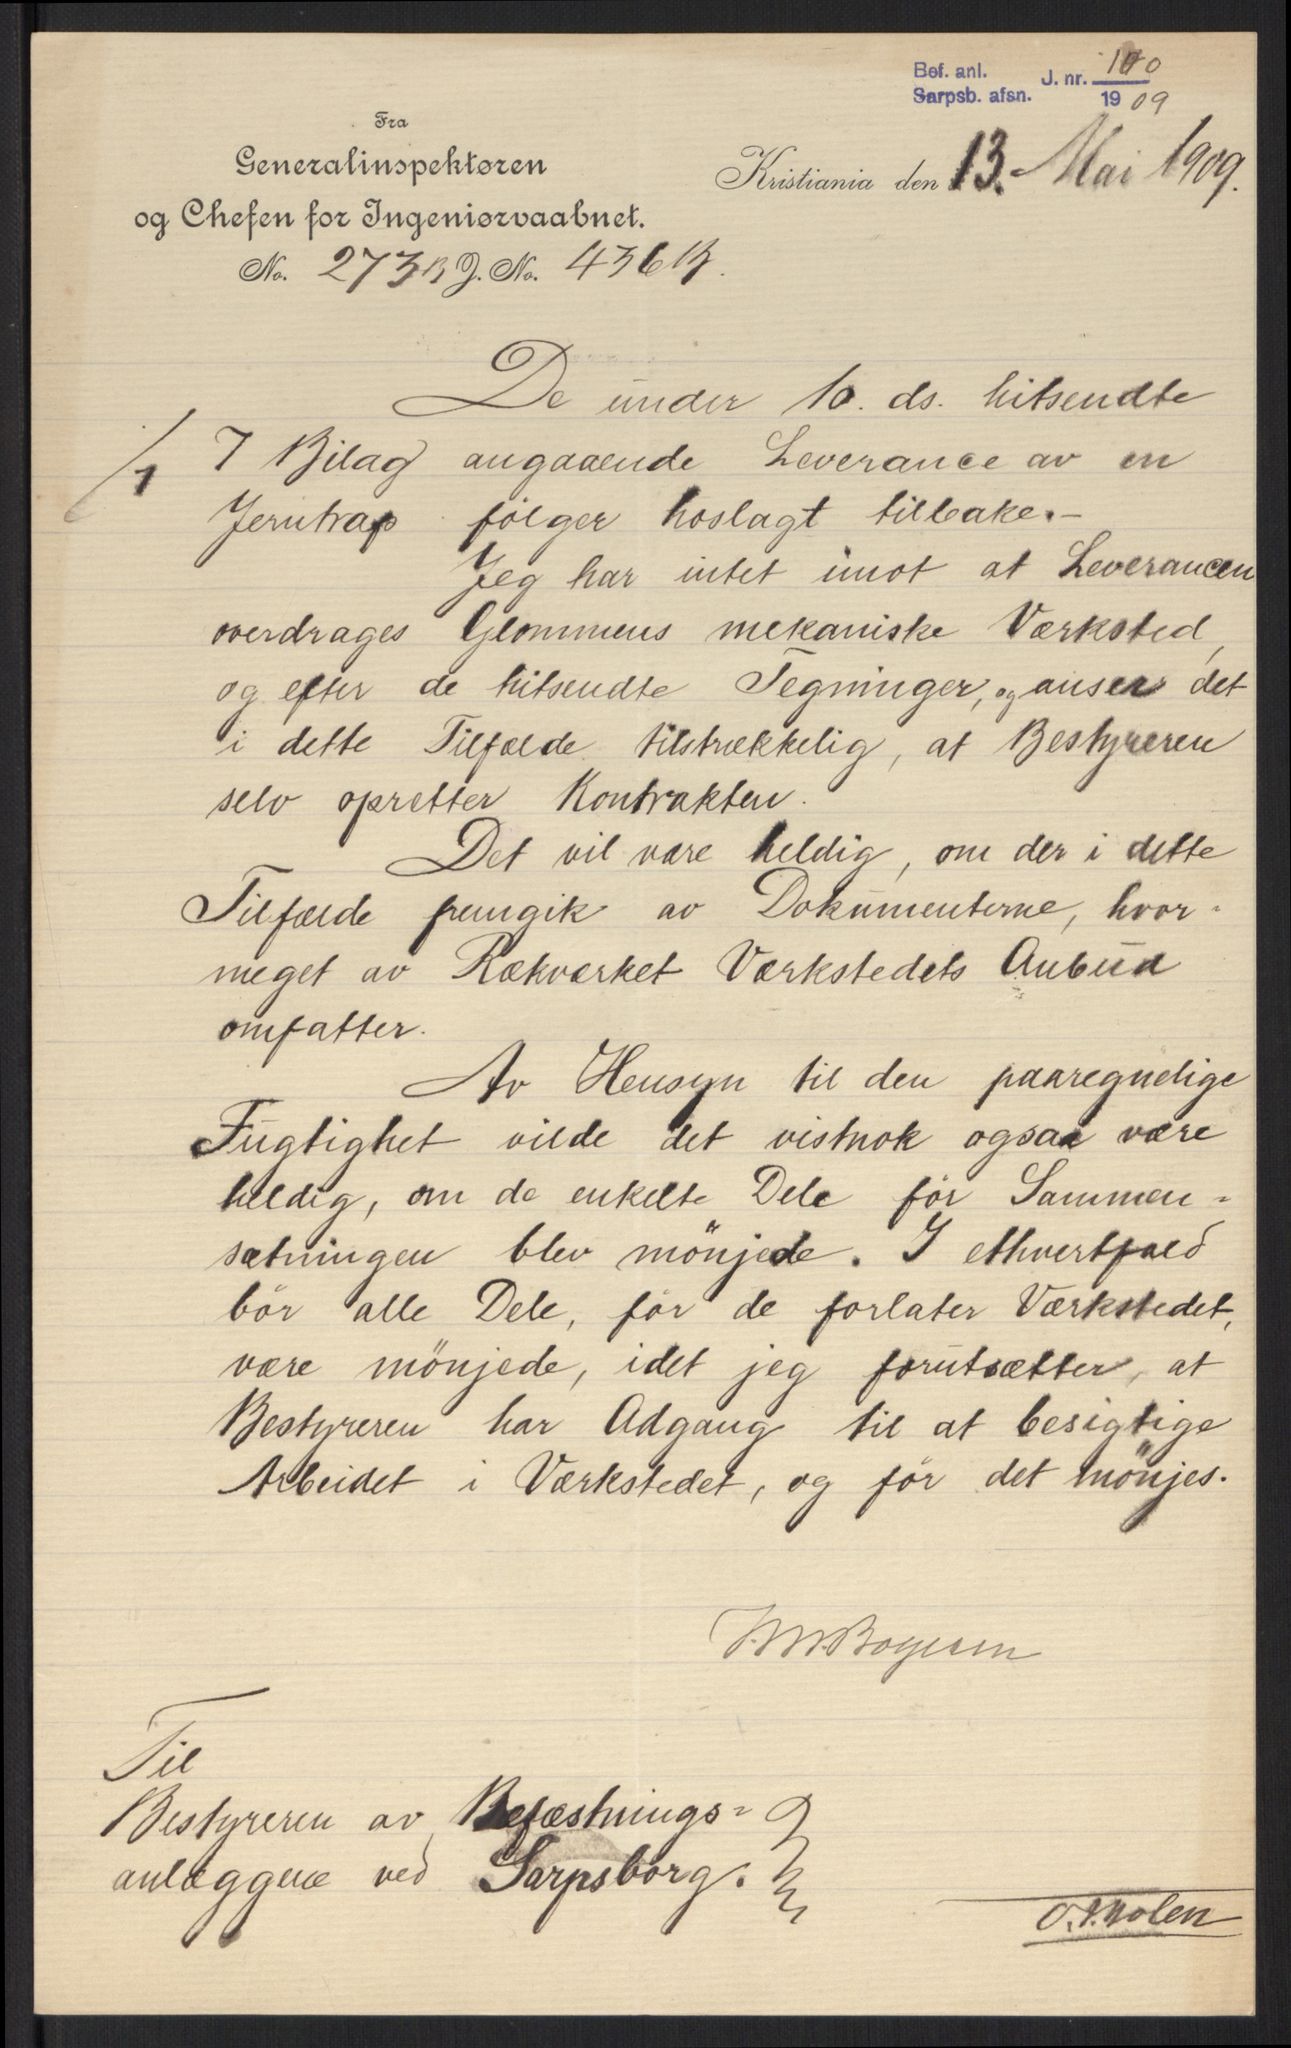 Bef. anl.
Sarpsb. afsn.
J. nr. 100
1909
Fra
Generalinspektøren
og Chefen for Ingeniørvaabnet.
No. 273 B J. No. 436 B.
Kristiania den 13. Mai 1909.
De under 10. ds. hitsendte
/1 7 Bilag angaaende Leverance av en
Jerntrap følger hoslagt tilbake.-
Jeg har intet imot at Leverancen
overdrages Glommens mekaniske Værksted,
og efter de hitsendte Tegninger, og anser det
i dette Tilfælde tilstrækkelig, at Bestyreren
selv opretter Kontrakten.
Det vil være heldig, om der i dette
Tilfælde fremgik av Dokumenterne, hvor-
meget av Rækværket Værkstedets Anbud
omfatter.
Av Hensyn til den paaregnelige
Fugtighet vilde det vistnok ogsaa være
heldig, om de enkelte Dele før Sammen-
sætningen blev mönjede. I ethvertfald
bör alle Dele, før de forlater Værkstedet,
være mönjede, idet jeg forutsætter, at
Bestyreren har Adgang til at besigtige
Arbeidet i Værkstedet, og før det mönjes.
Til
Bestyreren av Befæstnings-
anlæggene ved Sarpsborg.